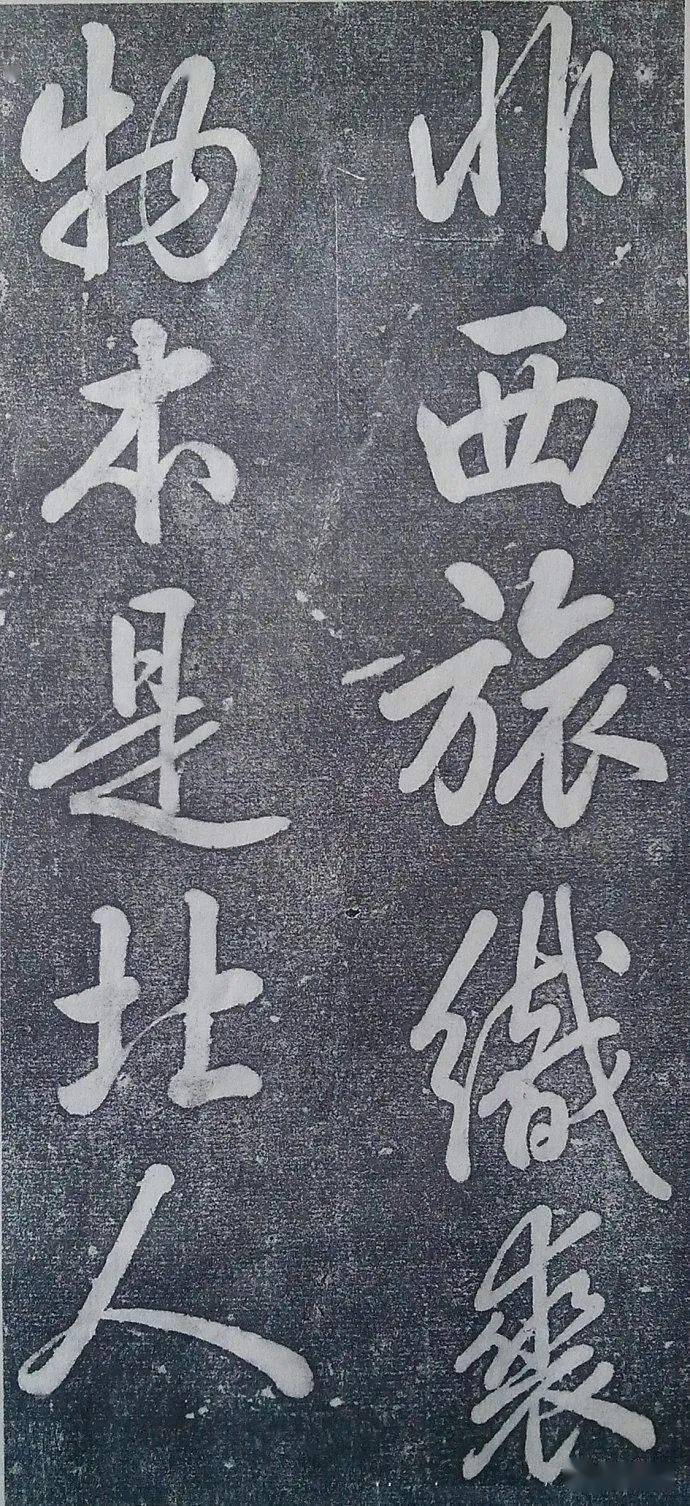 非西旅織裘
物本是北人